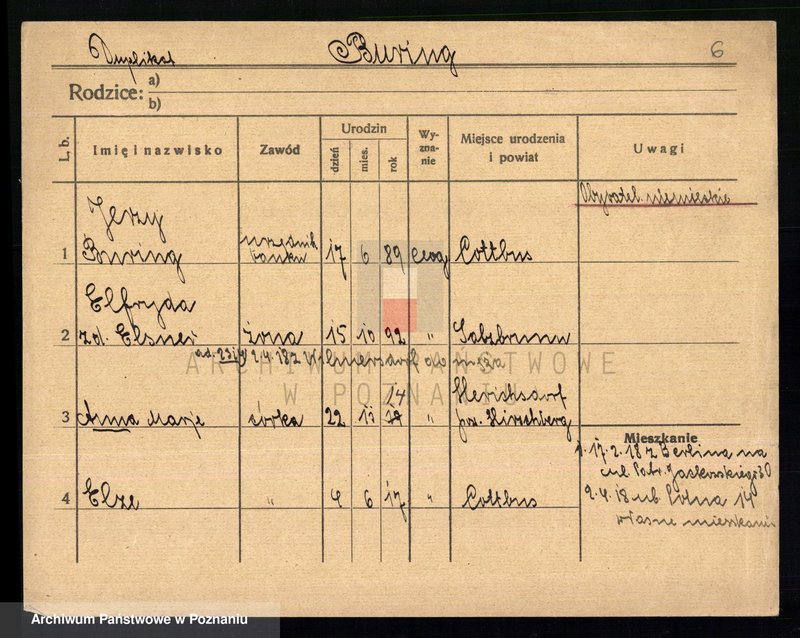 Duplikat Buring 6
Rodzice: a)
b)
L. b. Imię i nazwisko Zawód Urodzin dzień mies. rok Wy-znanie Miejsce urodzenia i powiat Uwagi
Obywatel. niemieckie
Jerzy
1 Buring urzędnik banku 17 6 89 ewg Cottbus
Elfryda
2 zd. Elsner żona 15 10 92 " Salzbrunn
2.4.18 z
14
3 Anna Marje córka 22 12 18 " pow. Hirschberg
Mieszkanie
17.2.18 z Berlina na
ul. Patr. Jackowskiego 30
4 Elze " 4 6 17 " Cottbus
2.4.18 ul. Polna 14
własne mieszkanie
ARCHIWUM PAŃSTWOWE
W POZNANIU
Archiwum Państwowe w Poznaniu